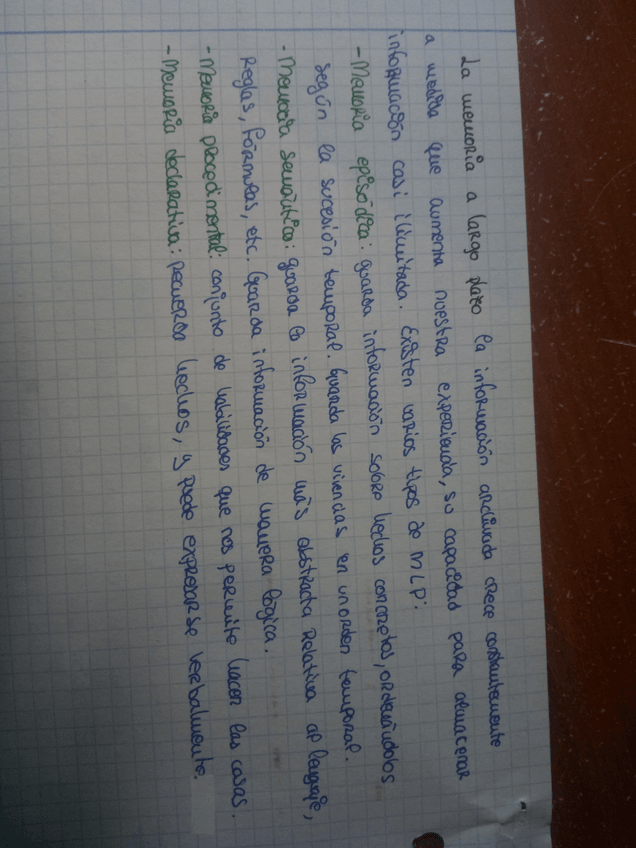 La memoria a largo plazo la información archivada crece constantemente
a medida que aumenta nuestra experiencia, su capacidad para almacenar
información casi ilimitada. Existen varios tipos de MLP:
- Memoria episódica: guarda información sobre hechos concretos, ordenándolos
según la sucesión temporal. Guarda las vivencias en un orden temporal.
- Memoria semántica: guarda la información más abstracta relativa al lenguaje,
Reglas, fórmulas, etc. Guarda información de manera lógica.
- Memoria procedimental: conjunto de habilidades que nos permite hacer las cosas.
- Memoria declarativa: recuerda hechos, y puede expresarse verbalmente.